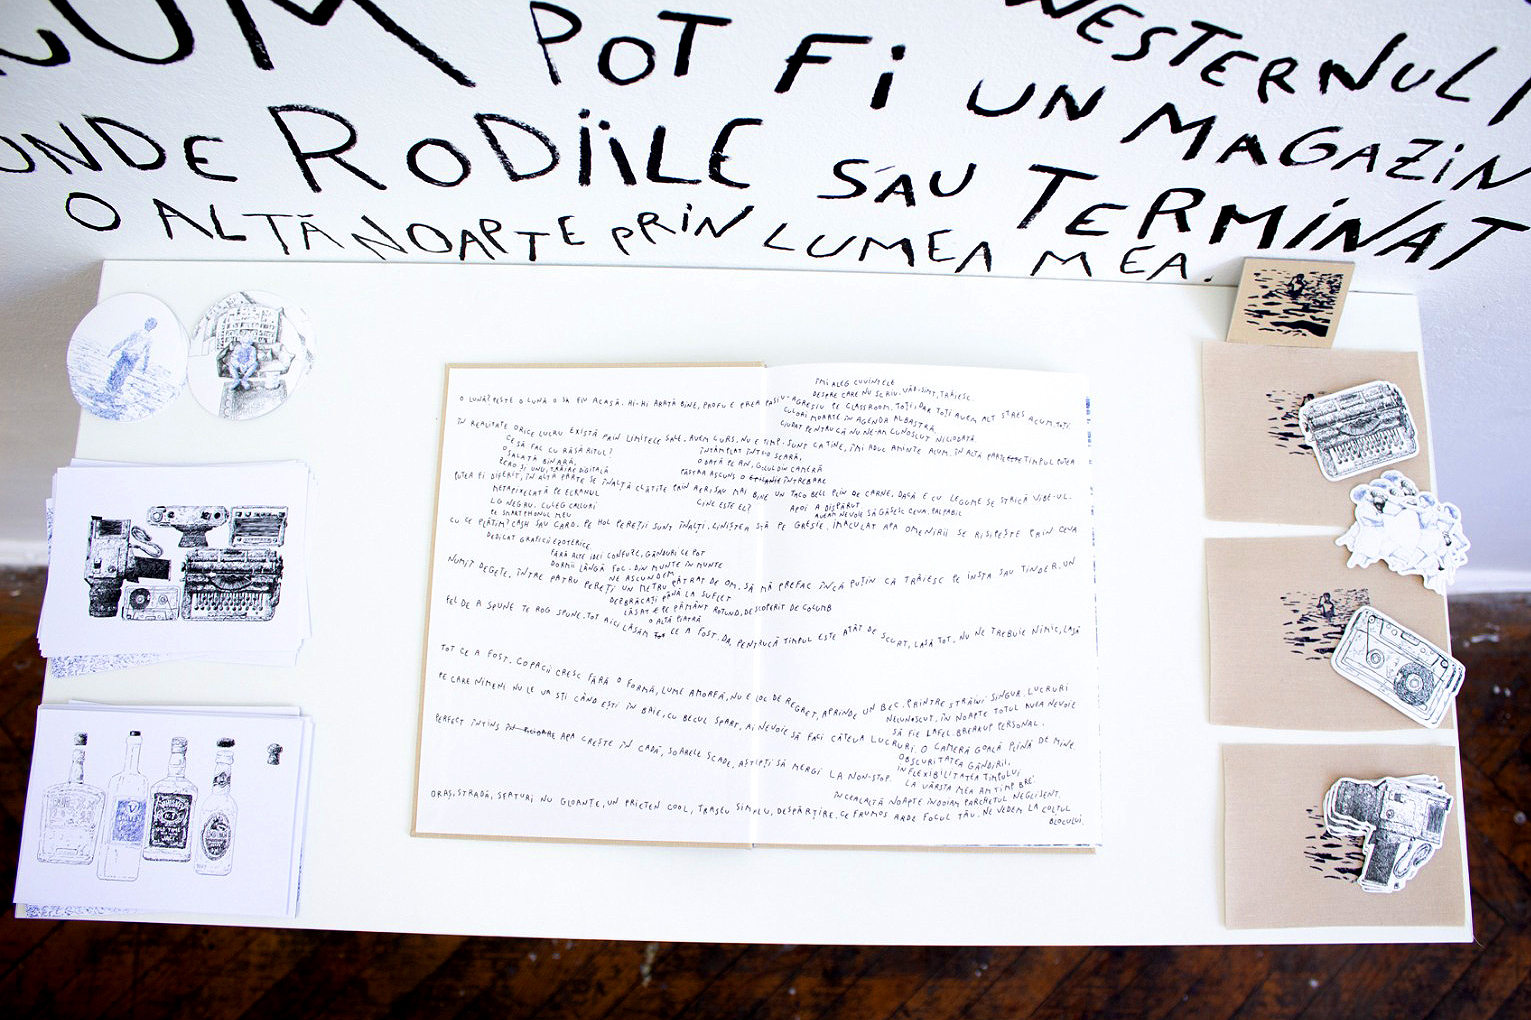 POT FI UN MAGAZIN
RODIILE SAU TERMINAT
O ALTĂ NOAPTE PRIN LUMEA MEA.
ÎMI ALEG CUVINTELE
DESPRE CARE NU SCRIU. VĂD. SIMT. TRĂIESC.
O LUNĂ? PESTE O LUNĂ O SĂ FIU ACASĂ. HI-HI ARATĂ BINE, PROFU E PREA PASIV-AGRESIV PE CLASSROOM. TOȚI, DAR TOȚI AVEM ALT STRES ACUM. TOȚI.
CULORI MOARTE ÎN AGENDA ALBASTRĂ,
CIUDAT PENTRU CĂ NU NE-AM CUNOSCUT NICIODATĂ.
ÎN REALITATE ORICE LUCRU EXISTĂ PRIN LIMITELE SALE. AVEM CURS. NU E TIMP. SUNT CA TINE, ÎMI ADUC AMINTE ACUM. ÎN ALTĂ PARTE TIMPUL PUTEA
CE SĂ FAC CU RĂSĂRITUL?
ÎNTÂMPLAT ÎNTR-O SEARĂ,
O SALATĂ BINARĂ,
O DATĂ PE AN, GOLUL DIN CAMERĂ
ZERO ȘI UNU, TĂRIRE DIGITALĂ
PĂSTRA ASCUNS O ÎNTREBARE
PUTEA FI DIFERIT, ÎN ALTĂ PARTE SE ÎNALȚĂ CLĂTITE PRIN AER SAU MAI BINE UN TACO BELL PLIN DE CARNE, DACĂ E CU LEGUME SE STRICĂ VIBE-UL.
METAPIXELATĂ PE ECRANUL
CINE ESTE EL?
APOI A DISPĂRUT.
LG NEGRU. CULEG CALCURI
AVEAM NEVOIE SĂ GĂSESC CEVA PALPABIL
PE SMARTPHONUL MEU
CU CE PLĂTIM? CASH SAU CARD. PE HOL PEREȚII SUNT ÎNALȚI. LINIȘTEA STĂ PE GRESIE, IMACULAT APA OMENIRII SE RISIPEȘTE PRIN CEVA
DEDICAT GRAFICII EZOTERICE.
FĂRĂ ALTE IDEI CONFUZE, GÂNDURI CE POT
DORMI LÂNGĂ FOC. DIN MUNTE ÎN MUNTE
NE ASCUNDEM
NUMIT DEGETE, ÎNTRE PATRU PEREȚI UN METRU PĂTRAT DE OM, SĂ MĂ PREFAC ÎNCĂ PUȚIN CĂ TRĂIESC PE INSTA SAU TINDER. UN
DEZBRĂCAȚI PÂNĂ LA SUFLET
LĂSAȚI PE PĂMÂNT ROTUND, DESCOPERIT DE COLUMB
O ALTĂ PIATRĂ
FEL DE A SPUNE TE ROG SPUNE. TOT AICI LĂSĂM TOT CE A FOST. DA, PENTRUCĂ TIMPUL ESTE ATÂT DE SCURT, LASĂ TOT. NU NE TREBUIE NIMIC, LASĂ
TOT CE A FOST. COPACII CRESC FĂRĂ O FORMĂ, LUME AMORFĂ, NU E LOC DE REGRET, APRINDE UN BEC. PRINTRE STRĂINI SINGUR, LUCRURI
NECUNOSCUT, ÎN NOAPTE TOTUL AVEA NEVOIE
SĂ FIE LAFEL. BREAKUP PERSONAL.
PE CARE NIMENI NU LE VA ȘTI CÂND EȘTI ÎN BAIE, CU BECUL SPART, AI NEVOIE SĂ FACI CÂTEVA LUCRURI. O CAMERĂ GOALĂ PLINĂ DE MINE
OBSCURITATEA GÂNDIRII,
INFLEXIBILITATEA TIMPULUI
PERFECT ÎNTINS ÎN PICIOARE APA CREȘTE ÎN CADĂ, SOARELE SCADE, AȘTEPȚI SĂ MERGI LA NON-STOP.
LA VÂRSTA MEA AM TIMP BRE.
ÎN CEALALTĂ NOAPTE ÎNDOIAM PARCHETUL NEGLIJENT.
ORAȘ, STRADĂ, SFATURI NU GLOANȚE, UN PRIETEN COOL, TRASEU SIMPLU, DESPĂRȚIRE. CE FRUMOS ARDE FOCUL TĂU. NE VEDEM LA COLȚUL
BLOCULUI.